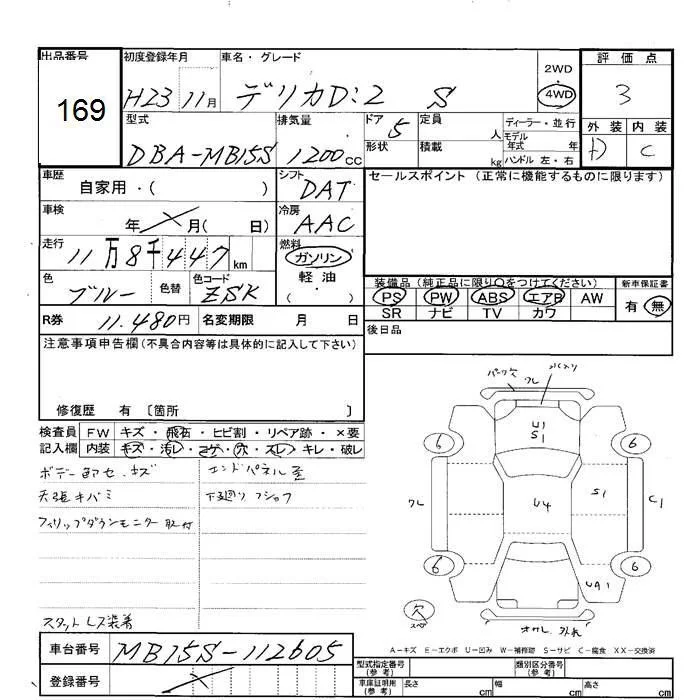 出品番号 初度登録年月 車名・グレード 2WD 評価点
169 H23 11月 デリカD:2 S 4WD 3
型式 排気量 ドア 5 定員 人 ディーラー・並行 外装 内装
DBA-MB15S 1200cc 形状 積載 kg モデル年式 年 C
ハンドル 左・右
車歴 シフト セールスポイント (正常に機能するものに限ります)
自家用・( ) DAT
車検 冷房
年 月( 日) AAC
走行 燃料
11万8千447km ガソリン
色 色替 色コード 軽油
ブルー ZSK ( ・ )
装備品 (純正品に限り○をつけてください) 新車保証書
PS PW ABS エアB AW 有 無
SR ナビ TV カワ
R券 11.480円 名変期限 月 日 後日品
注意事項申告欄 (不具合内容等は具体的に記入して下さい)
修復歴 有 〔箇所 〕
検査員 FW キズ・飛石・ヒビ割・リペア跡・×要
記入欄 内装 キズ・汚レ・コゲ・穴・スレ・キレ・破レ
ボデー キズ エンドパネル
天張キバミ 下廻り
フィリップダウンモニター取付
スタットレス装着
ワレ
U1
S1
6 6
ワレ U4 S1 C1
6 6
UA1
欠
外れ
A-キズ E-エクボ U-凹み W-補修跡 S-サビ C-腐食 XX-交換済
車台番号 MB15S-112605 型式指定番号 (参考) 類別区分番号 (参考)
登録番号 車庫証明用 (参考) 長さ cm 幅 cm 高さ cm